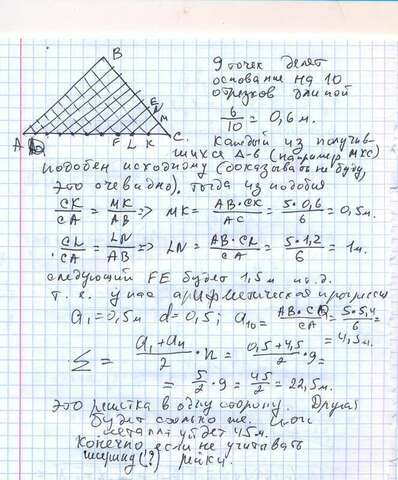 B
E
N
M
A D F L K C.
9 точек делят
основание на 10
отрезков длиной
6/10 = 0,6 м.
Каждый из получив-
шихся Δ-в (например МКС)
подобен исходному (доказывать не буду,
это очевидно). Тогда из подобия
CK/CA = MK/AB => MK = AB·CK/AC = 5·0,6/6 = 0,5м.
CL/CA = LN/AB => LN = AB·CL/CA = 5·1,2/6 = 1м.
следующий FE будет 1,5м и т.д.
т. е. у нас арифметическая прогрессия
a₁=0,5м d=0,5; a₁₀= AB·CD/CA = 5·5,4/6 =
= 4,5м.
Σ = a₁+aₙ/2 · n = 0,5+4,5/2 · 9 =
= 5/2 · 9 = 45/2 = 22,5м.
Это решетка в одну сторону. Другая
будет столько же. Итого
металла уйдет 45м.
Конечно если не учитывать
ширину(!?) рейки.